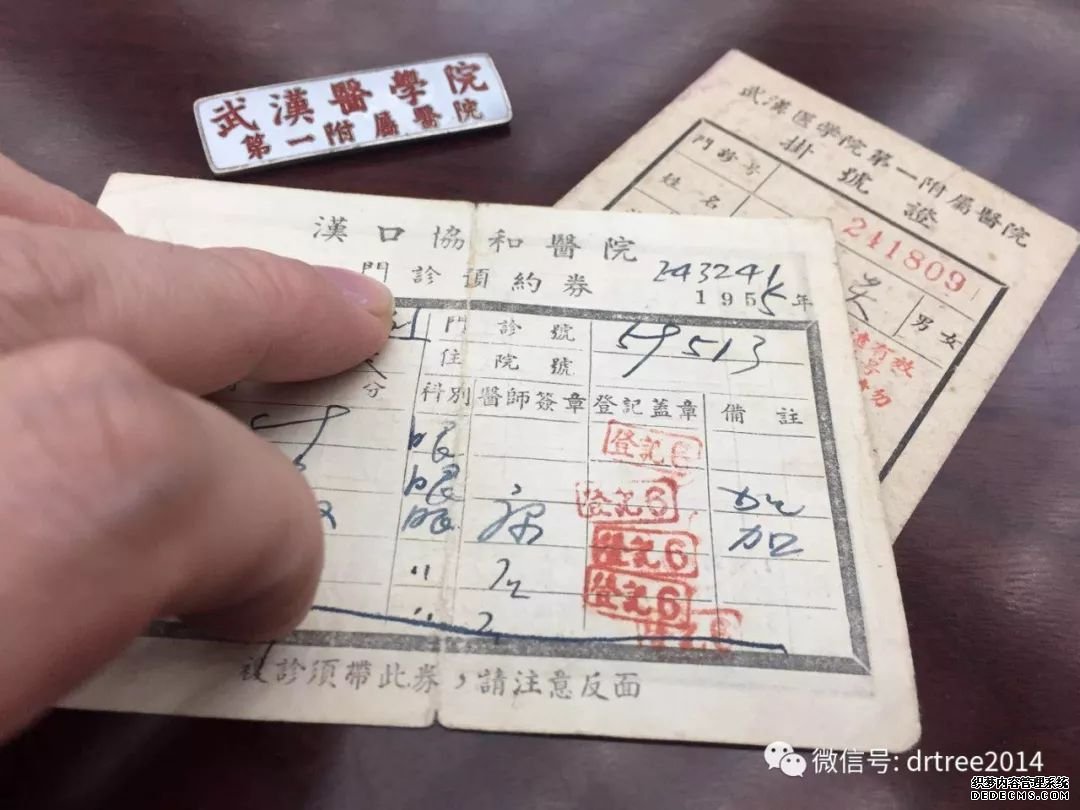 武漢醫學院
第一附屬醫院
武漢医学院第一附属醫院
掛號證
門診号
241809
姓名
男女
漢口協和醫院
243241
門診預約券
1955年
門診號
59513
住院號
分 科別 醫師簽章 登記蓋章 備註
眼 登記6
眼 登記6 加
眼 登記6 加
〃 登記6
〃 登記6
複診須帶此券，請注意反面
微信号: drtree2014
织梦内容管理系统
DEDECMS.COM